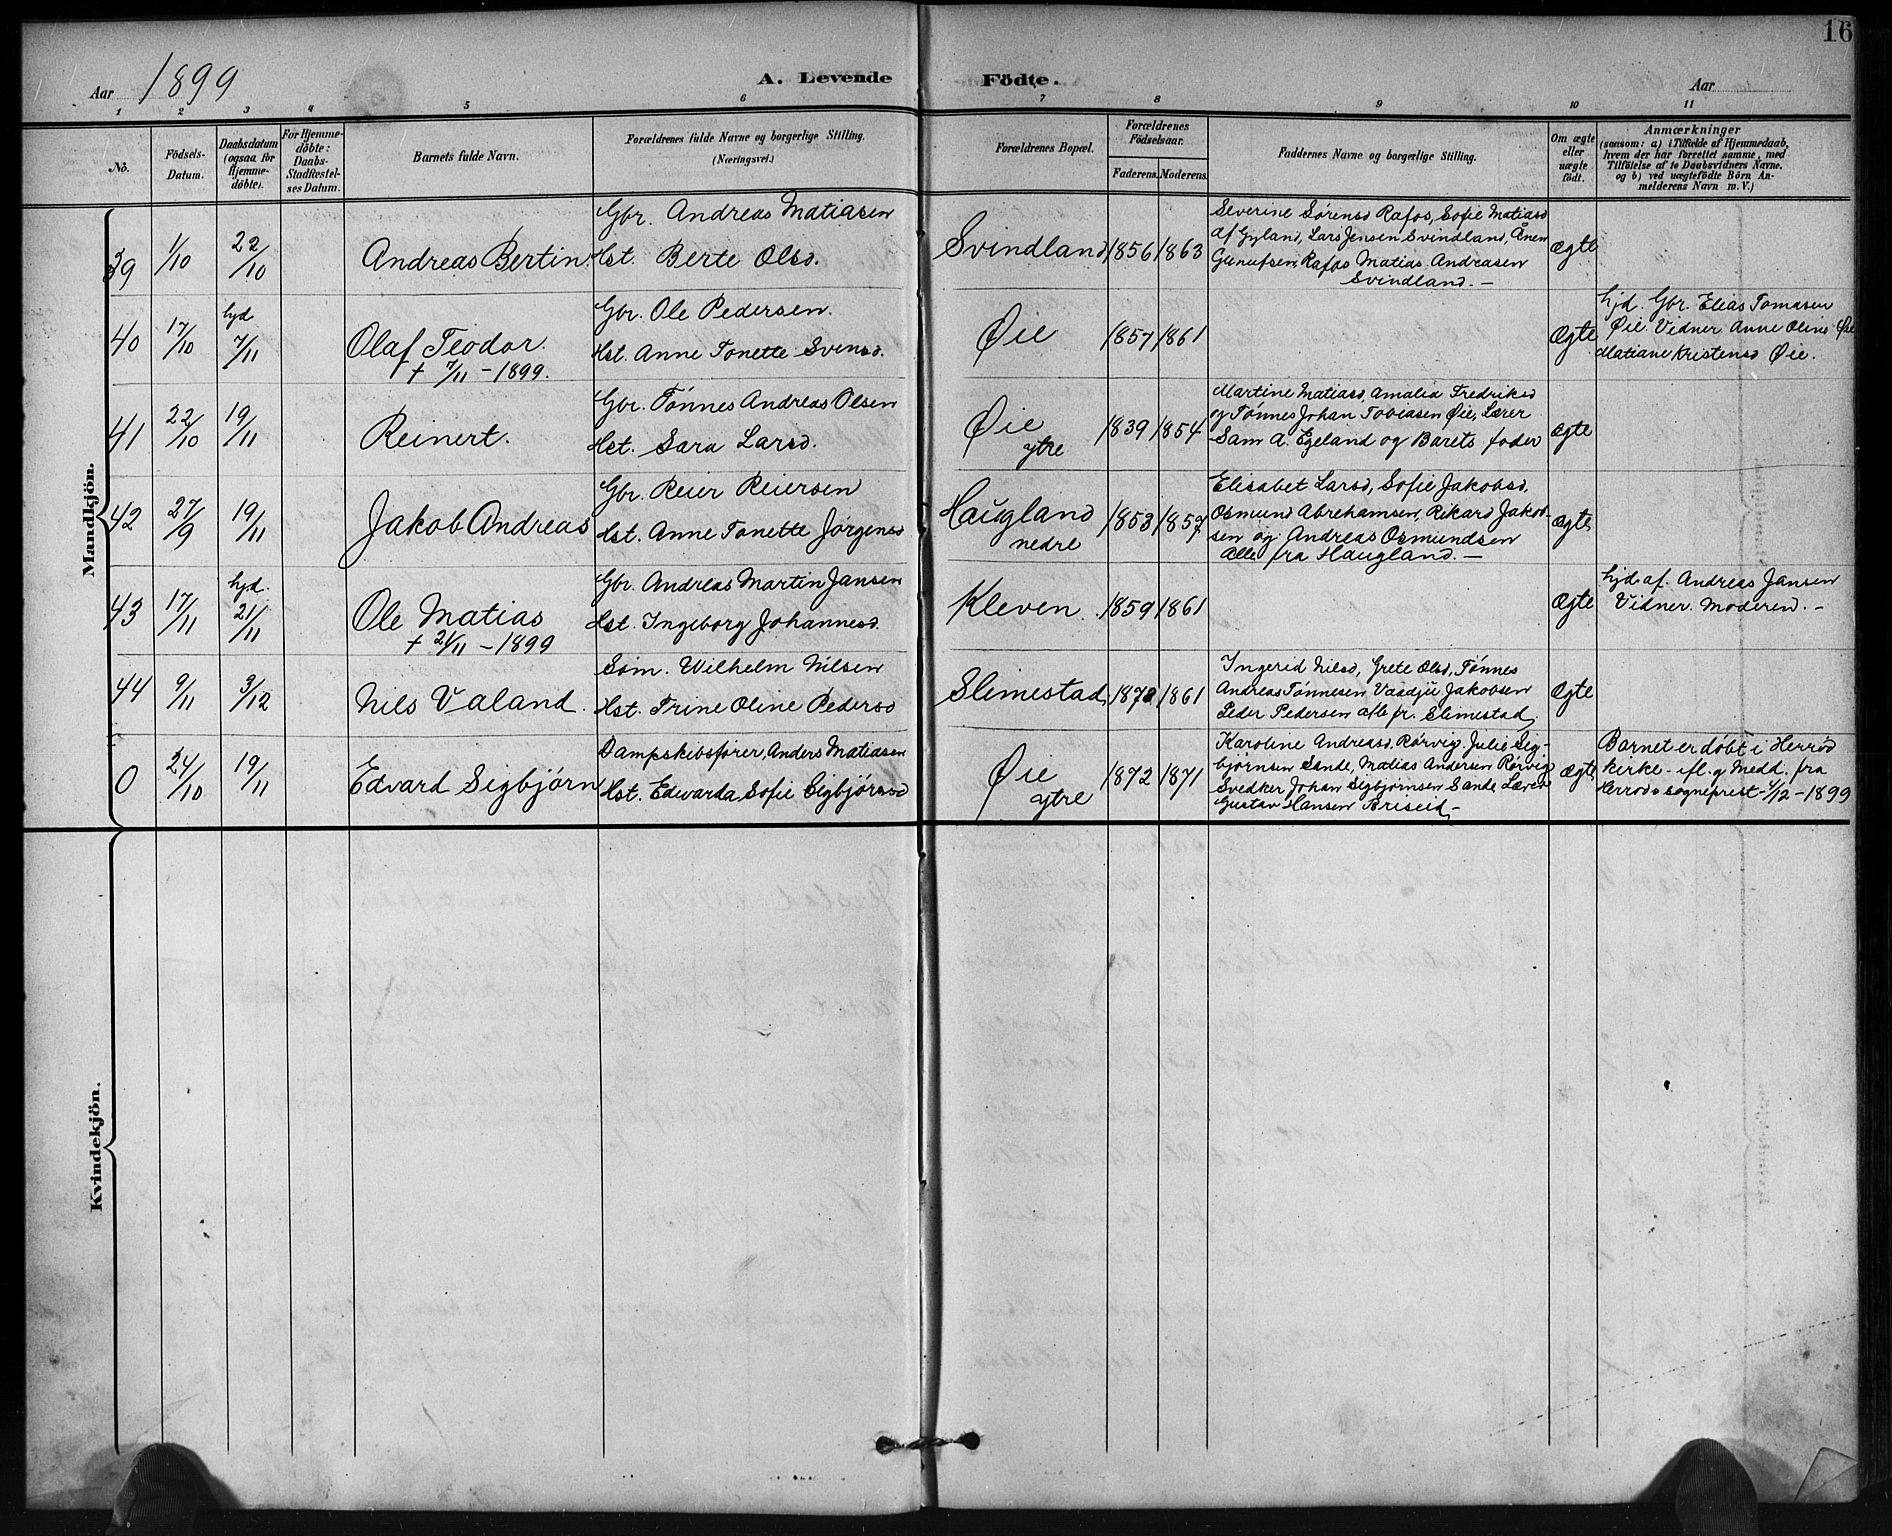 16
Aar 1899
A. Levende Födte.
Aar
1 2 3 4 5 6 7 8 9 10 11
No.
Födsels-
Datum.
Daabsdatum
(ogsaa for
Hjemme-
döbte).
For Hjemme-
döbte:
Daabs-
Stadfæstel-
ses Datum.
Barnets fulde Navn.
Forældrenes fulde Navne og borgerlige Stilling.
(Næringsvei.)
Forældrenes Bopæl.
Forældrenes
Födselsaar.
Faderens. Moderens.
Faddernes Navne og borgerlige Stilling.
Om ægte
eller
uægte
födt.
Anmærkninger
(saasom: a) i Tilfælde af Hjemmedaab,
hvem der har forrettet samme, med
Tilföielse af to Daabsvidners Navne.
og b) ved uægtefödte Börn An-
melderens Navn m. V.)
Mandkjön.
39 1/10 22/10
Andreas Bertin.
Gbr. Andreas Matiasen
Hst. Berte Olsd.
Svindland 1856 1863
Severine Sørensd Rafos, Sofie Matiasd
af Gyland, Lars Jensen Svindland, Ånen
Gunufsen Rafos Matias Andreasen
Svindland. —
Ægte
40 17/10 hjd 7/11
Olaf Teodor.
† 7/11 – 1899.
Gbr. Ole Pedersen.
Hst. Anne Tonette Svensd.
Øie 1857 1861
Ægte
hjd. Gbr. Elias Tomasen
Øie. Vidner Anne Oline Øie
Matiane Kristensd Øie.
41 22/10 19/11
Reinert.
Gbr. Tønnes Andreas Olsen
Hst. Sara Larsd.
Øie
ytre
1839 1854
Martine Matiasd, Amalia Fredriksd
og Tønnes Johan Tobiasen Øie, Lærer
Sam A. Egeland og Barets fader
Ægte
42 27/9 19/11
Jakob Andreas
Gbr. Reier Reiersen
Hst. Anne Tonette Jørgensd
Haugland
nedre
1853 1857
Elisabet Larsd, Sofie Jakobsd,
Osmund Abrehamsen, Rikard Jakob-
sen og Andreas Osmundsen
Alle fra Haugland. —
Ægte
43 17/11 hjd. 21/11
Ole Matias
† 21/11 – 1899
Gbr. Andreas Martin Jansen
Hst. Ingeborg Johannesd.
Kleven. 1859 1861
Ægte
hjd af. Andreas Jansen
Vidner. Moderen. –
44 9/11 3/12
Nils Valand.
Søm. Wilhelm Nilsen
Hst. Trine Oline Pedersd
Slimestad 1861
Ingerid Nilsd, Grete Olsd, Tønnes
Andreas Tønnesen, Jakobsen
Peder Pedersen alle fr. Slimestad
Ægte
0 24/10 19/11
Edvard Sigbjørn
Dampskibsfører, Anders Matiasen
Hst. Edwarda Sofie Sigbjørnsd
Øie
ytre
1872 1871
Karoline Andreasd, Rørvig, Julie Sig-
bjørnsen Sande, Matias Andersen Rørvig
Svedker Johan Sigbjørnsen Sande Lærer
Gustav Hansen Briseid –
Ægte
Barnet er døbt i Herrød
kirke – ifl. g Medd. fra
Herrøds sogneprest – 1/12 – 1899
Kvindekjön.